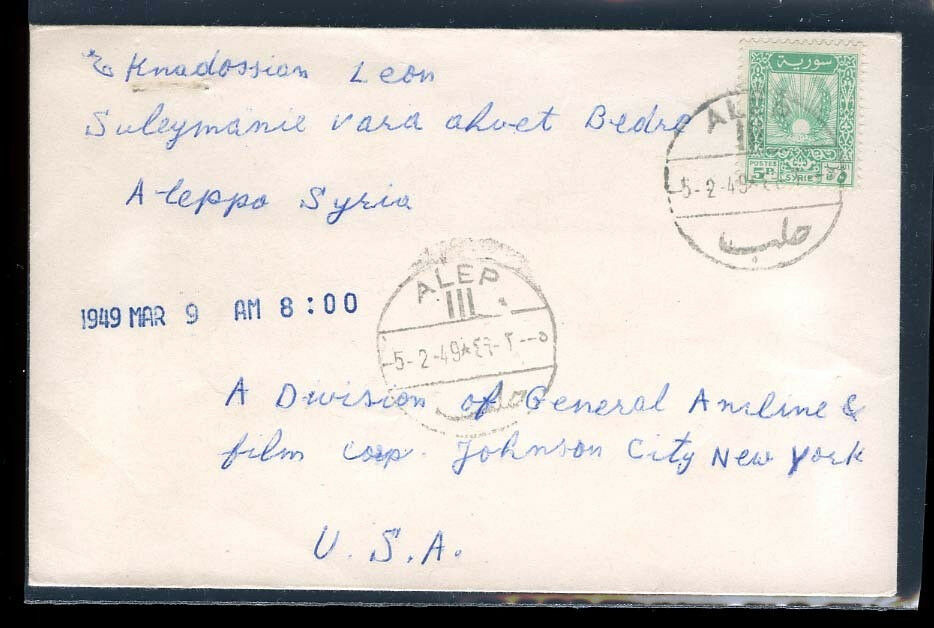 Knadossian Leon
Suleymanie vara ahvet Bedre
Aleppo Syria
سورية
POSTES
SYRIE
5P
ALEP
III
5-2-49
حلب
1949 MAR 9 AM 8:00
ALEP
III
5-2-49*٤٩-٢-٥
حلب
A Division of General Aniline &
film corp. Johnson City New York
U.S.A.